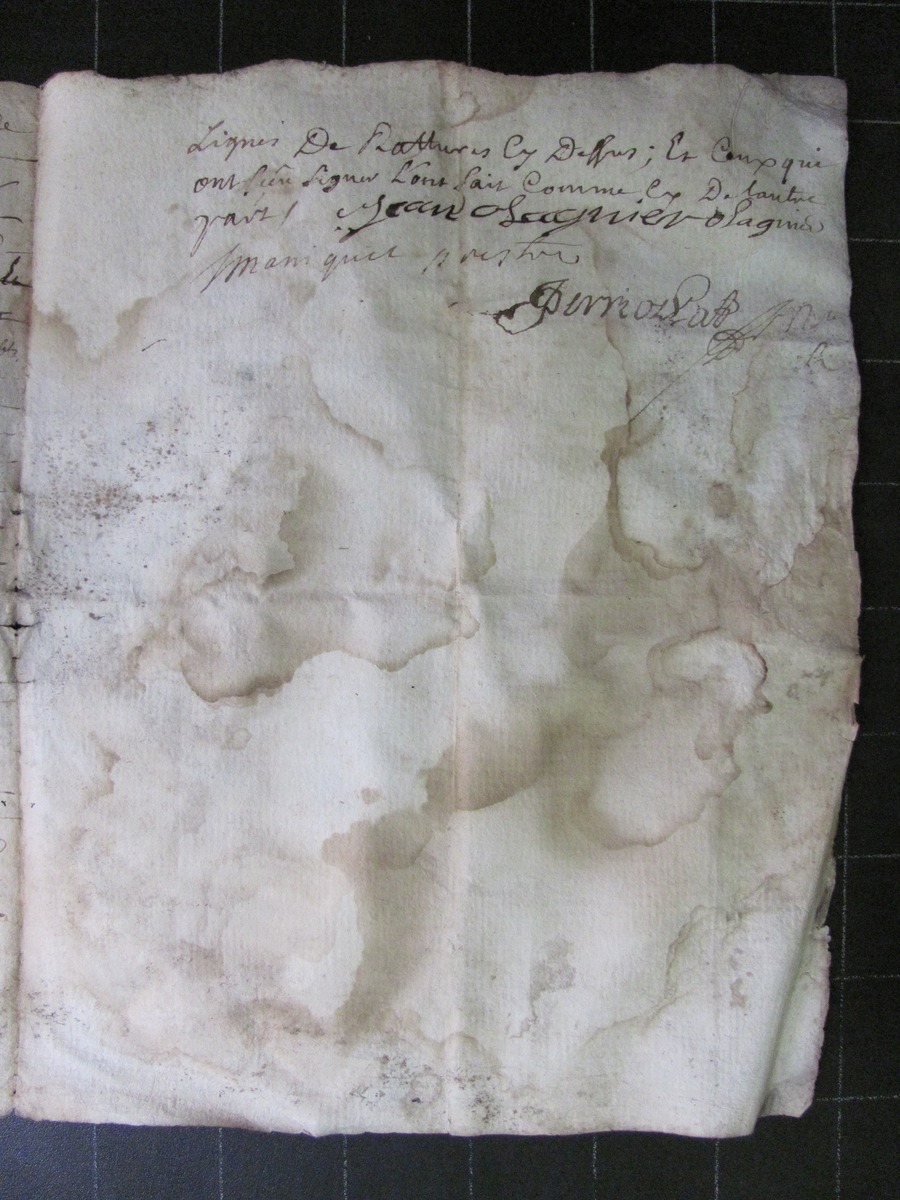 Lignes De Rattures Cy Dessus; Et Ceux qui
ont sceu signer L'ont fait Comme Cy De Lautre
part /. Jean Lagnier Lagnier
maniquet prestre
Perriollat